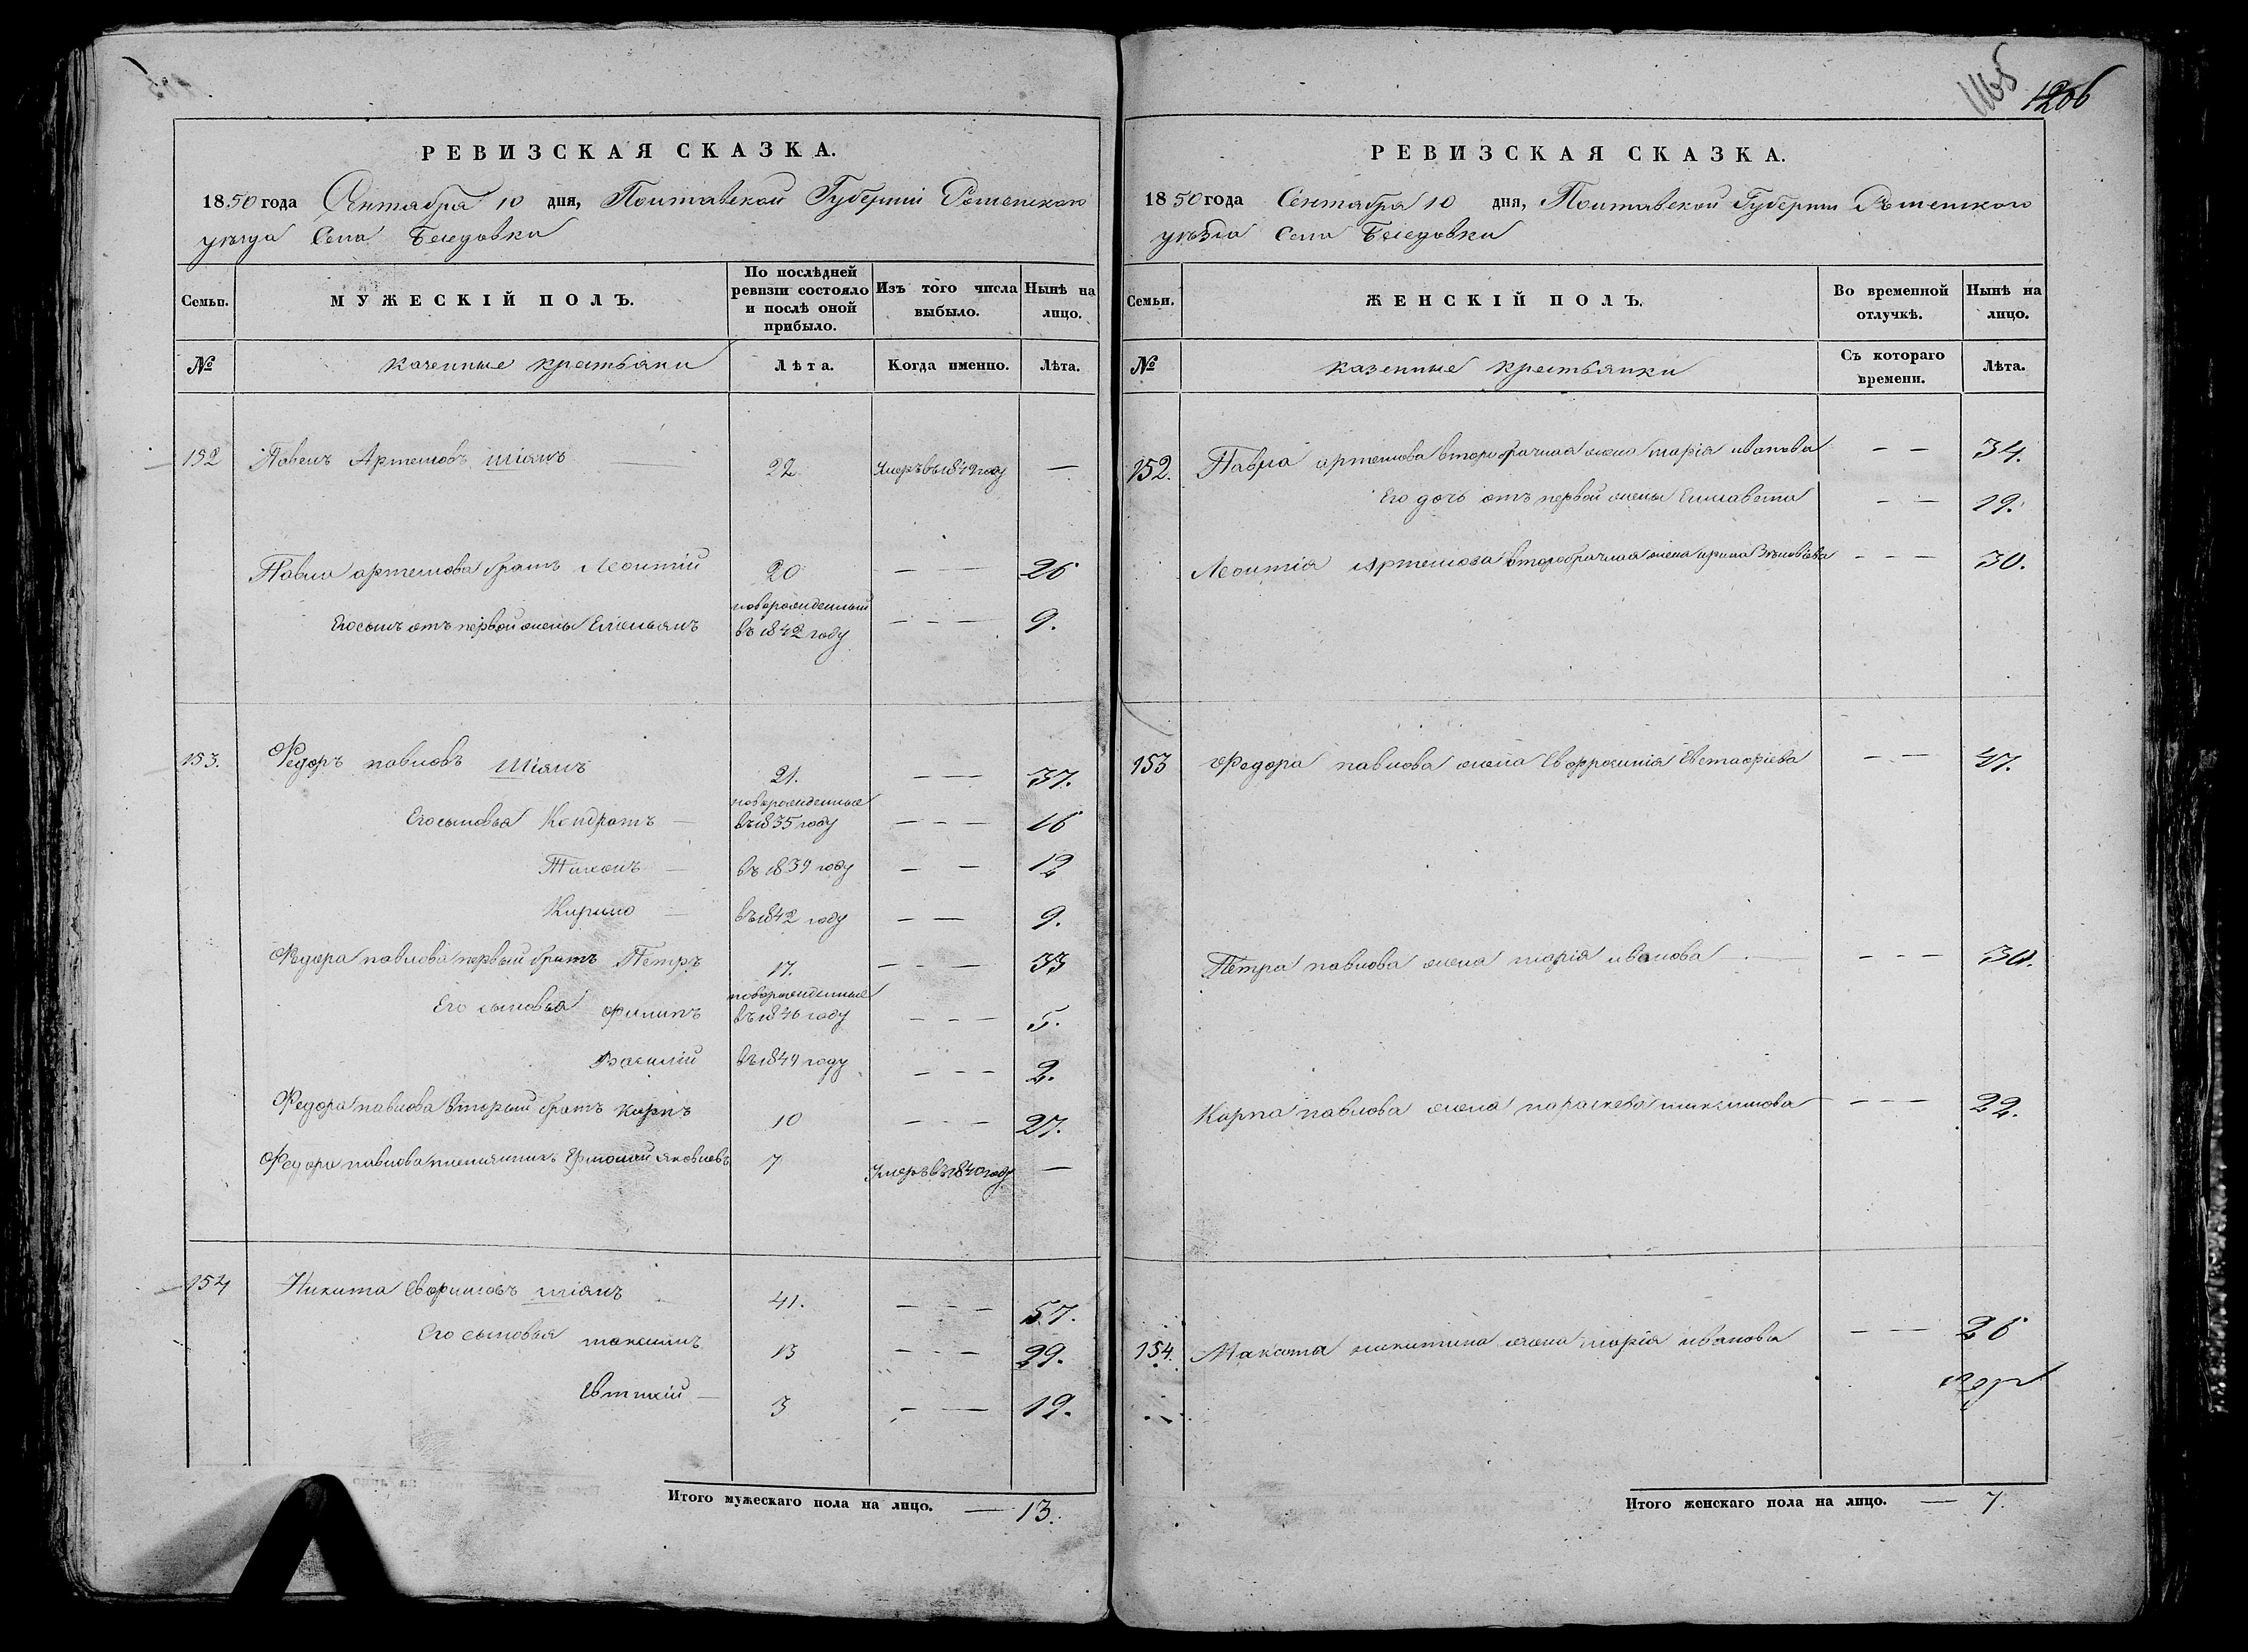 1206
РЕВИЗСКАЯ СКАЗКА.
1850 года Сентября 10 дня, Полтавской Губерніи Роменского
уѣзда Села Беседовки
Семьи.
МУЖЕСКІЙ ПОЛЪ.
По послѣдней ревизіи состояло и послѣ оной прибыло.
Изъ того числа выбыло.
Нынѣ на лицо.
№ казенные крестьяни Лѣта. Когда именно. Лѣта.
152 Павелъ Артемовъ Шіянъ 22 Умеръ въ 1849 году —
Павла артемова братъ Леонтій 20 — — — 26
Его сынъ отъ первой жены Емельянъ новорожденный въ 1842 году — — — 9.
153. Федоръ павловъ Шіянъ 21. — — — 37.
Его сыновья Кондратъ — новорожденные въ 1835 году — — — 16
Тихонъ — въ 1839 году — — 12
Кирило — въ 1842 году — — 9.
Федора павлова первый братъ Петръ 17. — — — 33
Его сыновья филипъ новорожденные въ 1846 году — — — 5.
Василій въ 1849 году — — — 2.
Федора павлова вторый братъ карпъ 10 — — — 27.
Федора павлова племянникъ Ермолай яковлевъ 7 Умеръ въ 1840 году —
154 Никита Евфимовъ шіянъ 41. — — — 57.
Его сыновья максимъ 13 — — — 29.
Евтихій — 3 — — 19.
Итого мужескаго пола на лицо. — 13.
РЕВИЗСКАЯ СКАЗКА.
1850 года Сентября 10 дня, Полтавской Губерніи Роменского
уѣзда Села Беседовки
Семьи.
ЖЕНСКІЙ ПОЛЪ.
Во временной отлучкѣ.
Нынѣ на лицо.
№ казенные крестьянки Съ котораго времени. Лѣта.
152. Павла артемова второбрачная жена марія иванова — — 34.
Его дочь отъ первой жены Елисавета — — 19.
Леонтія Артемова второбрачная жена ирина — — — 30.
153 Федора павлова жена Евфросинія Евстафіева — — 47.
Петра павлова жена марія иванова — — — 30.
Карпа павлова жена параскева максимова — — — 22.
154. Максима никитина жена марія иванова — — 26
Итого женскаго пола на лицо. — 7.